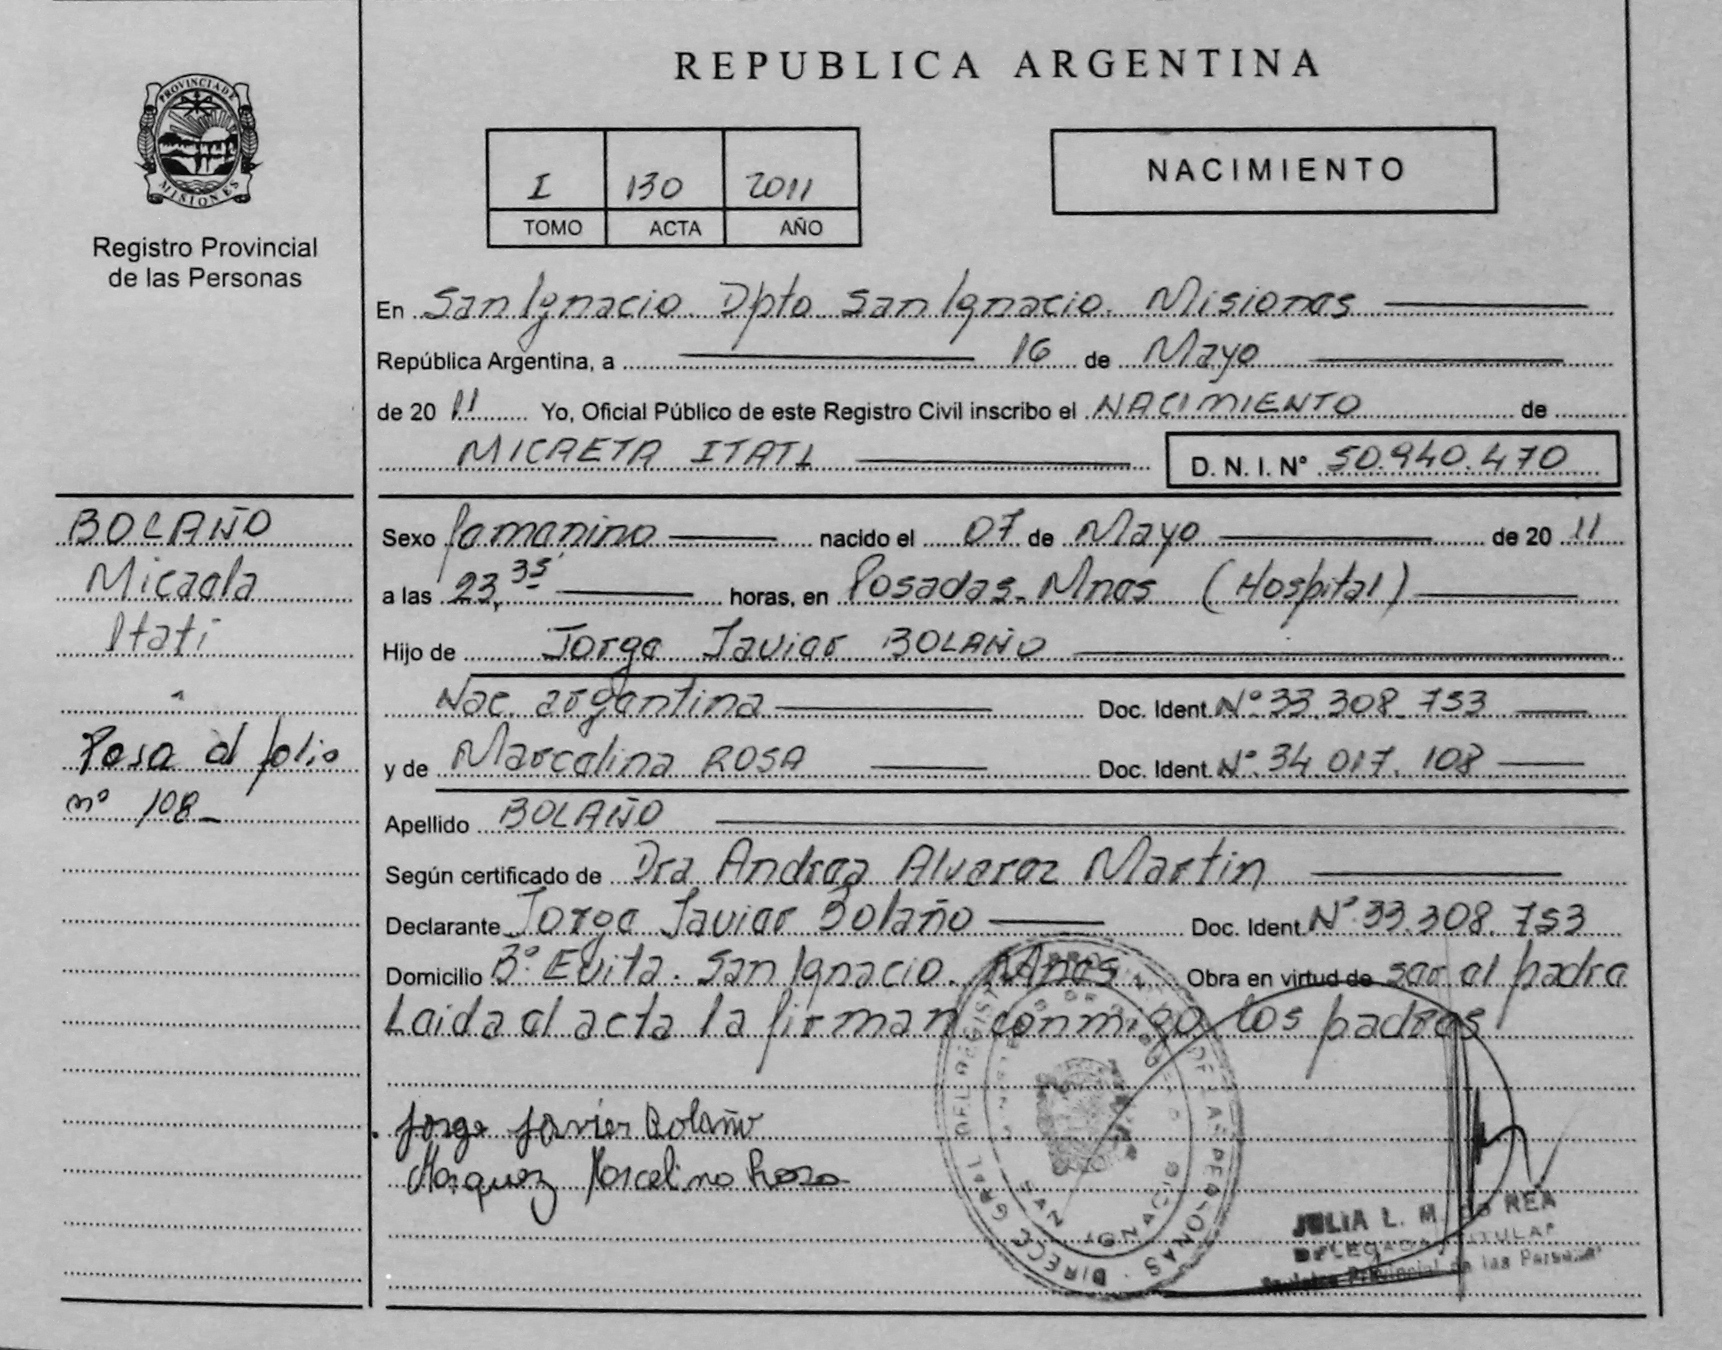 REPUBLICA ARGENTINA
PROVINCIA DE
MISIONES
Registro Provincial
de las Personas
I 130 2011
TOMO ACTA AÑO
NACIMIENTO
En San Ignacio. Dpto San Ignacio. Misiones
República Argentina, a 16 de Mayo
de 2011 Yo, Oficial Público de este Registro Civil inscribo el NACIMIENTO de
MICAETA ITATI D. N. I. N° 50.940.470
BOLAÑO
Micaela
Itatí
Pasa al folio
nº 108
Sexo femenino nacido el 07 de Mayo de 2011
a las 23,35 horas, en Posadas. Mnes (Hospital)
Hijo de Jorge Javier BOLAÑO
Nac. argentina Doc. Ident. Nº 33.308.753
y de Marcelina ROSA Doc. Ident. Nº. 34.017.108
Apellido BOLAÑO
Según certificado de Dra Andrea Alvarez Martin
Declarante Jorge Javier Bolaño Doc. Ident. Nº 33.308.753
Domicilio Bº. Evita. San Ignacio. Mnes Obra en virtud de ser el padre
Leida el acta la firman conmigo los padres
Jorge Javier Bolaño
Marquez Marcelina Rosa
DIRECC GRAL DEL REGISTRO PROVINCIAL DE LAS PERSONAS
SAN IGNACIO
JULIA L. M.
DELEGADA TITULAR
Registro Provincial de las Personas